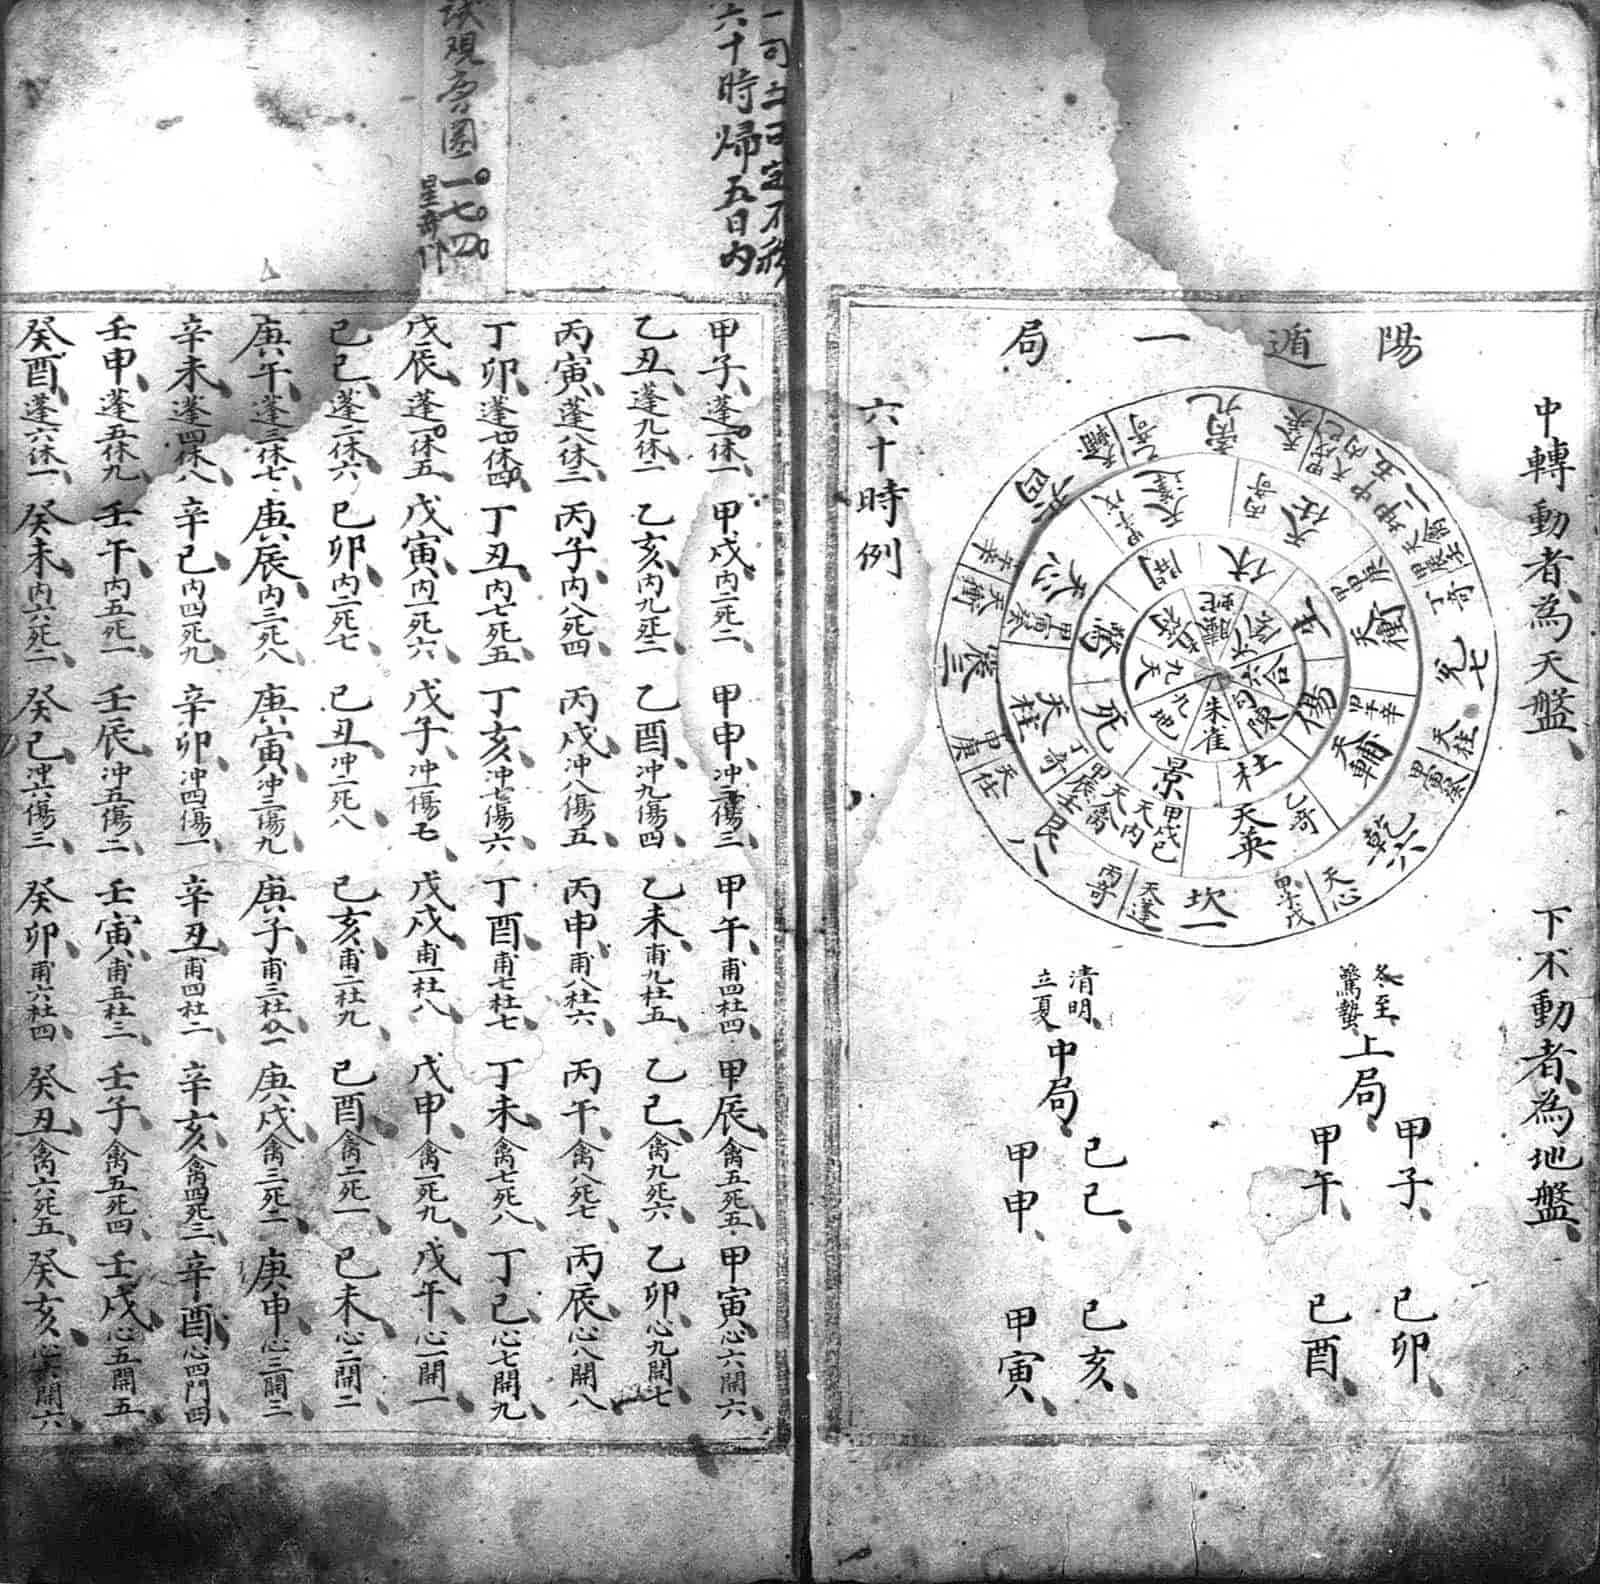 陽遁一局
中轉動者為天盤
下不動者為地盤
坎一
天蓬
丙奇
艮八
天任
甲申庚
震三
天衝
辛
巽四
天輔
乙奇
離九
天英
坤二
中五
天禽
甲辰壬
丁奇
兌七
天柱
甲寅癸
乾六
天心
甲子戊
天英
乙奇
天輔
甲午辛
天衝
甲申庚
天任
丙奇
天蓬
甲子戊
天心
甲寅癸
天柱
丁奇
甲辰壬
天禽
天內
甲戌己
休
生
傷
杜
景
死
驚
開
值符
螣蛇
太陰
六合
勾陳
朱雀
九地
九天
冬至
驚蟄
上局
甲子
甲午
己卯
己酉
清明
立夏
中局
己巳
甲申
己亥
甲寅
六十時例
六十時歸五日內
一七四
星奇門
甲子蓬一休一 甲戌內二死二 甲申冲三傷三 甲午甫四杜四 甲辰禽五死五 甲寅心六開六
乙丑蓬九休二 乙亥內九死二 乙酉冲九傷四 乙未甫九杜五 乙巳禽九死六 乙卯心九開七
丙寅蓬八休三 丙子內八死四 丙戌冲八傷五 丙申甫八杜六 丙午禽八死七 丙辰心八開八
丁卯蓬七休四 丁丑內七死五 丁亥冲七傷六 丁酉甫七杜七 丁未禽七死八 丁巳心七開九
戊辰蓬一休五 戊寅內一死六 戊子冲一傷七 戊戌甫一杜八 戊申禽一死九 戊午心一開一
己巳蓬二休六 己卯內二死七 己丑冲二死八 己亥甫二杜九 己酉禽二死一 己未心二開二
庚午蓬三休七 庚辰內三死八 庚寅冲三傷九 庚子甫三杜一 庚戌禽三死二 庚申心三開三
辛未蓬四休八 辛巳內四死九 辛卯冲四傷一 辛丑甫四杜二 辛亥禽四死三 辛酉心四門四
壬申蓬五休九 壬午內五死一 壬辰冲五傷二 壬寅甫五杜三 壬子禽五死四 壬戌心五開五
癸酉蓬六休一 癸未內六死一 癸巳冲六傷三 癸卯甫六杜四 癸丑禽六死五 癸亥心六開六